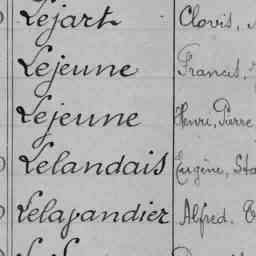 Lejart Clovis,
Lejeune Francis,
Lejeune Henri, Pierre
Lelandais Eugène, Sta
Lelapandier Alfred.